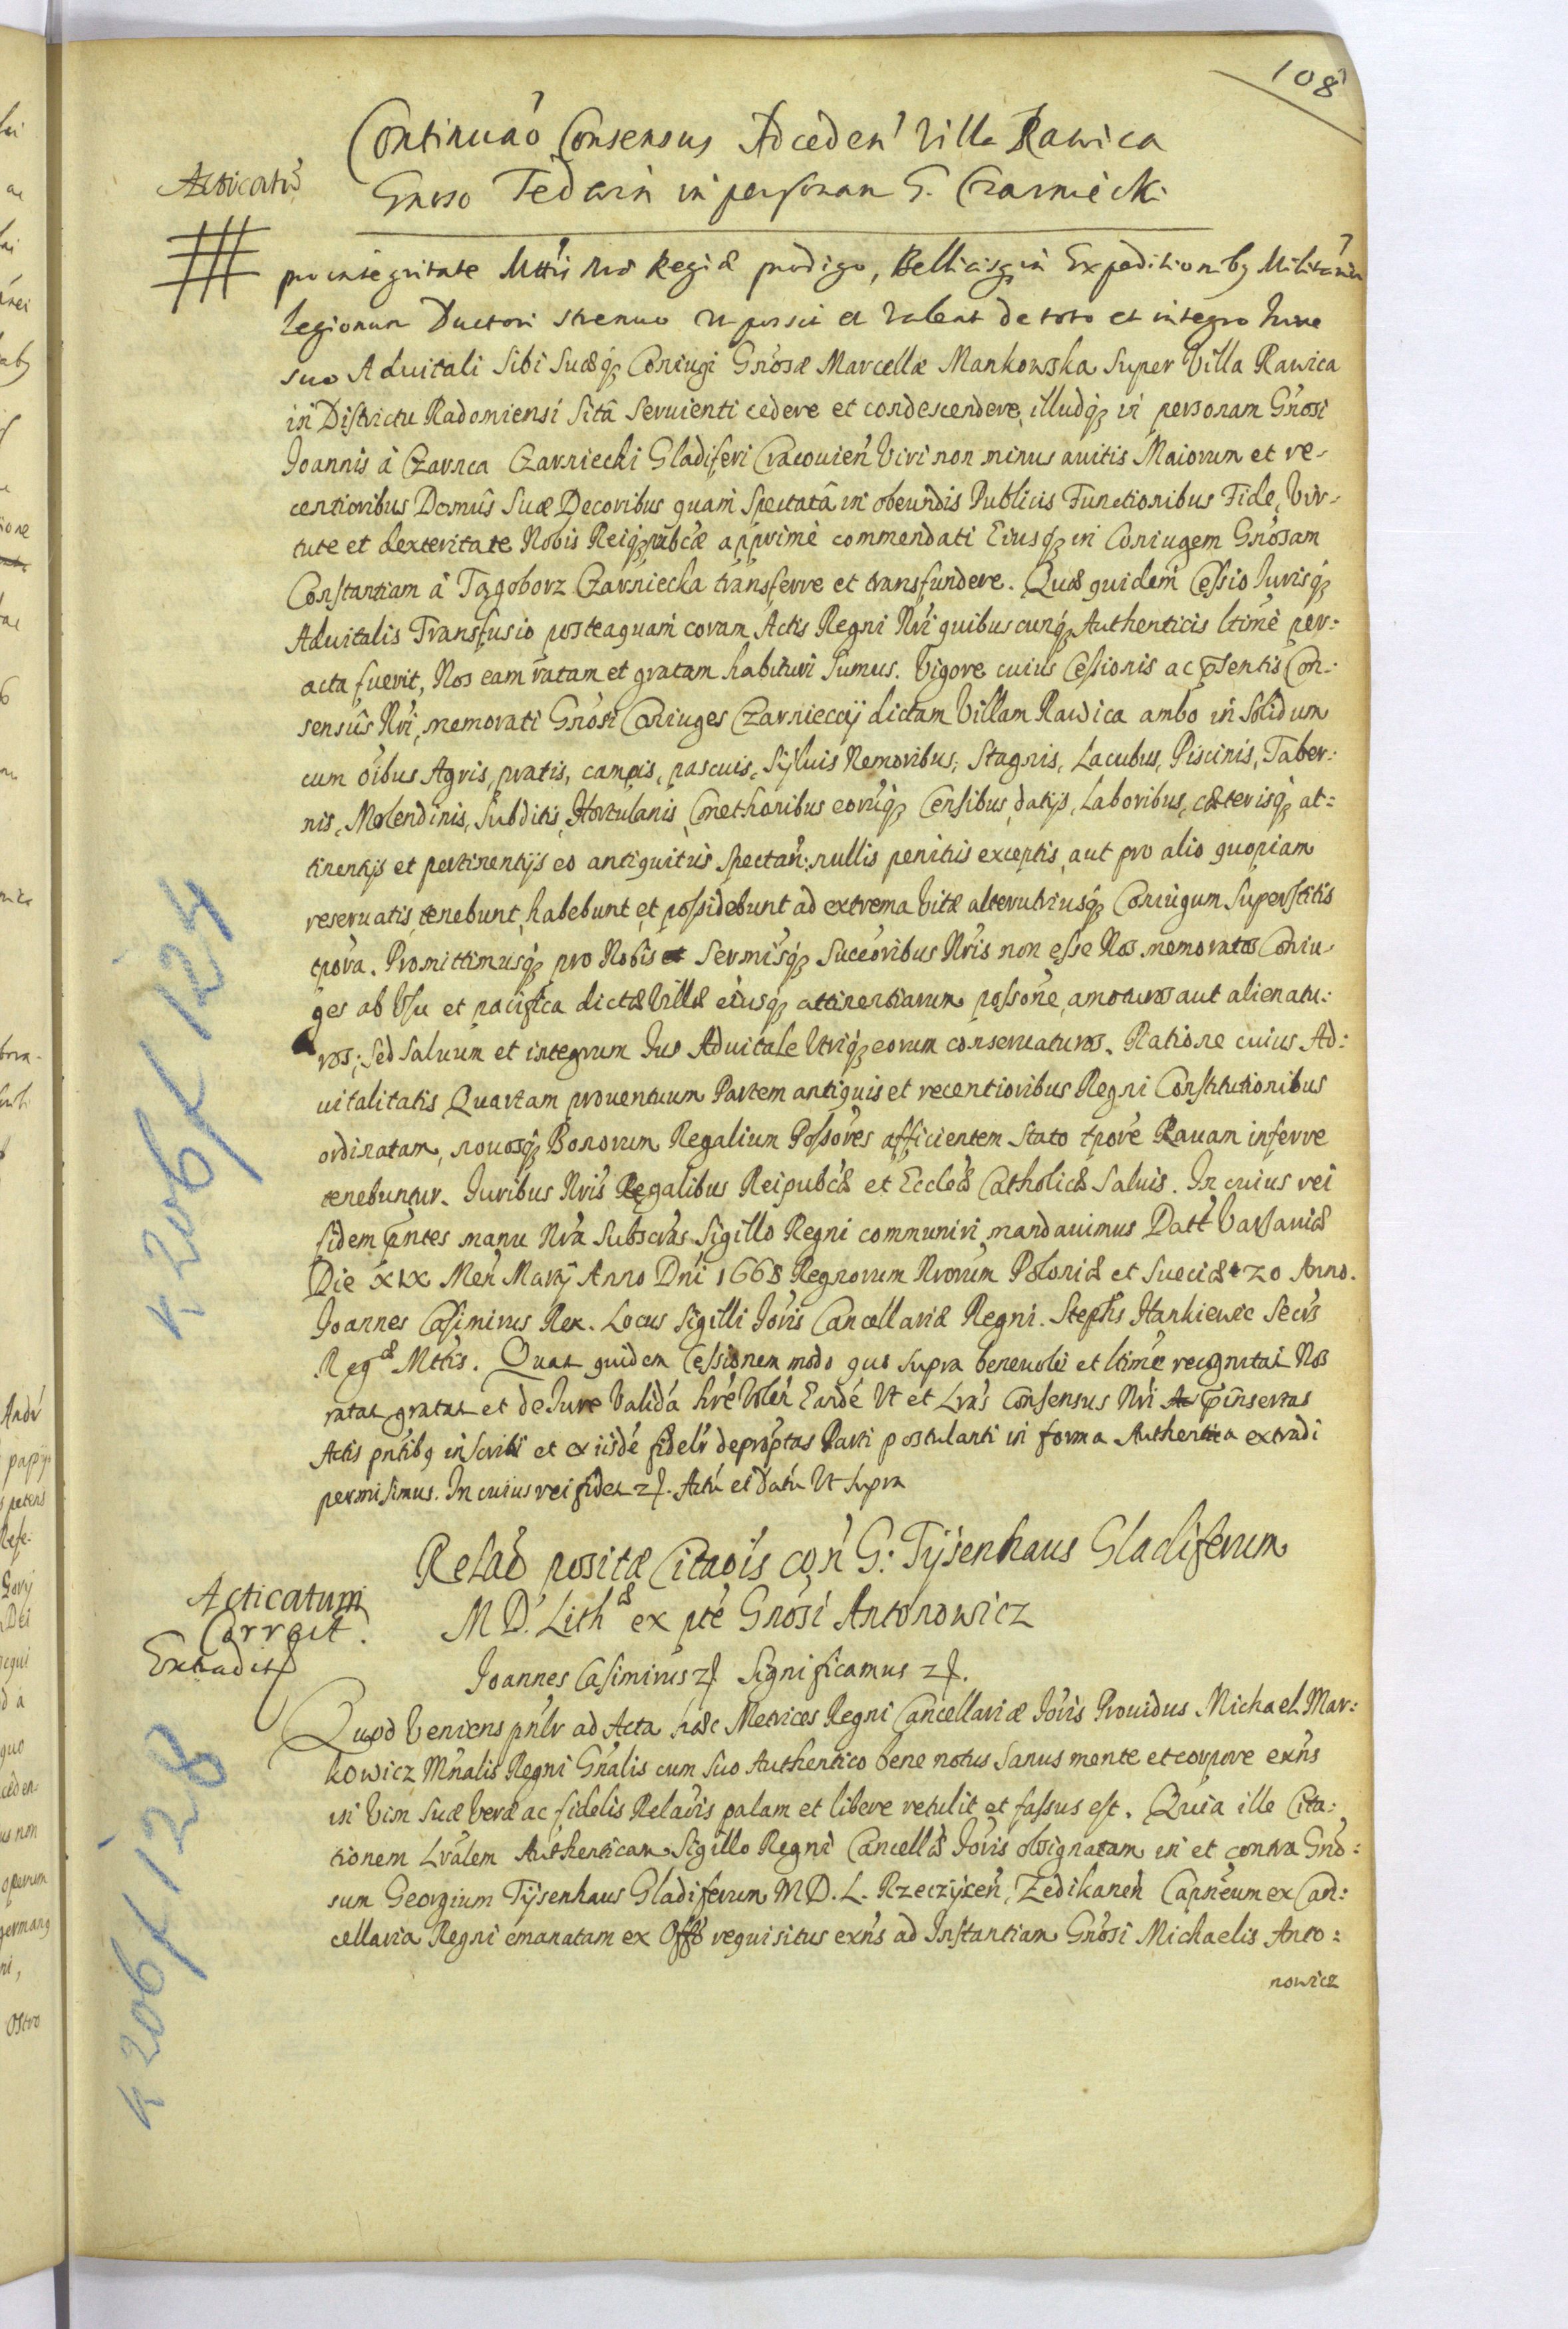 108
Continuaó Consensus Adceden' Villa Rawica
Acticatū
Gnoso Tedwin in personam G. Czarniecki
pro integritate Mttis Nrae Regiae prodigo, Bellicisq; in Expeditionibq Militariu
Legionum Ductori strenuo ut possit et valeat de toto et integro Jure
suo Aduitali Sibi Suaeq; Coniugi Gnosae Marcellae Mankowska Super Villa Rawica
in Districtu Radomiensi Sitâ Seruienti cedere et condescendere, illudq; in personam Gnosi
Joannis à Czarnca Czarniecki Gladiferi Cracouień Viri non minus auitis Maiorum et re-
centioribus Domûs Suae Decoribus quam Spectatâ in obeundis Publicis Functionibus Fide, Vir-
tute et dexteritate Nobis Reiq; pubcae apprimè commendati Eiusq; in Coniugem Gnosam
Constantiam à Tęgoborz Czarniecka transferre et transfundere. Quae quidem Cessio Jurisq;
Aduitalis Transfusio posteaquam coram Actis Regni Nri quibuscunq; Authenticis ltimè per:
acta fuerit, Nos eam ratam et gratam habituri Sumus. Vigore cuius Cessionis ac psentis Con:
sensûs Nri, memorati Gnosi Coniuges Czarnieccij dictam Villam Rawica ambo in Solidum
cum oibus Agris, pratis, campis, pascuis, Sijluis Nemoribus, Stagnis, Lacubus, Piscinis, Taber:
nis, Molendinis, Subditis, Hortulanis, Cmethonibus eorūq; Censibus, datijs, Laboribus, caeterisq; at=
tinentijs et pertinentijs eo antiquitùs Spectań: nullis penitùs exceptis, aut pro alio quopiam
reseruatis, tenebunt, habebunt, et possidebunt ad extrema Vitae alterutriusq; Coniugum Superstitis
tpora. Promittimusq; pro Nobis et Sermisq; Succoribus Nris non esse Nos memoratos Coniu
ges ab Usu et pacifica dictae Villae eiusq; attinentiarum possone, amoturos aut alienatu:
ros; Sed Saluum et integrum Jus Aduitale Utriq; eorum conseruaturos. Ratione cuius Ad:
uitalitatis Quartam prouentuum Partem antiquis et recentioribus Regni Constitutionibus
ordinatam, nouosq; Bonorum Regalium Possores afficientem Stato tpore Rauam inferre
tenebuntur. Juribus Nris Regalibus Reipubcae et Ecclae Catholicae Saluis. In cuius rei
fidem pntes manu Nra Subscras Sigillo Regni communiri mandauimus Datt Varsauiae
Die XIX Meń Marij Anno Dni 1668 Regnorum Nrorum Poloniae et Sueciae 20 Anno.
Joannes Casimirus Rex. Locus Sigilli Joris Cancellariae Regni. Stephs Hankiewic Secrs
Regae Mttis. Quas quidem Cessionem modo quo supra beneuolè et ltimè recognitas Nos
ratas gratas et de Jure Valida hre Voleń Eande Ut et Lras Consensus Nri pinsertas
Actis pntibq inscribi et ex iisdé fidelr depromptas Parti postulanti in forma Authentica extradi
permisimus. In cuius rei fidem zƒ. Actū et Datū Ut Supra
Relaō positae Citaōis coń G: Tijsenhaus Gladiferum
Acticatum
Correct.
Extradit
M D. Lithae ex pte Gnosi Antonowicz
Joannes Casimirus zƒ Significamus zƒ.
Quod Veniens pnlr ad Acta haec Metrices Regni Cancellariae Joris Prouidus Michael Mar:
kowicz Mnalis Regni Gnalis cum Suo Authentico bene notus Sanus mente et corpore exns
in Vim Suae Verae ac fidelis Relaōis palam et libere retulit et fassus est. Quia ille Cita:
tionem Lralem Authenticam Sigillo Regni Cancellae Joris obsignatam in et contra Gno:
sum Georgium Tijsenhaus Gladiferum M D. L. Rzeczyceń, Zedikaneń Capneum ex Can:
cellaria Regni emanatam ex Offo requisitus exns ad Instantiam Gnosi Michaelis Anto:
nowicz
K 206/124
K 206/128